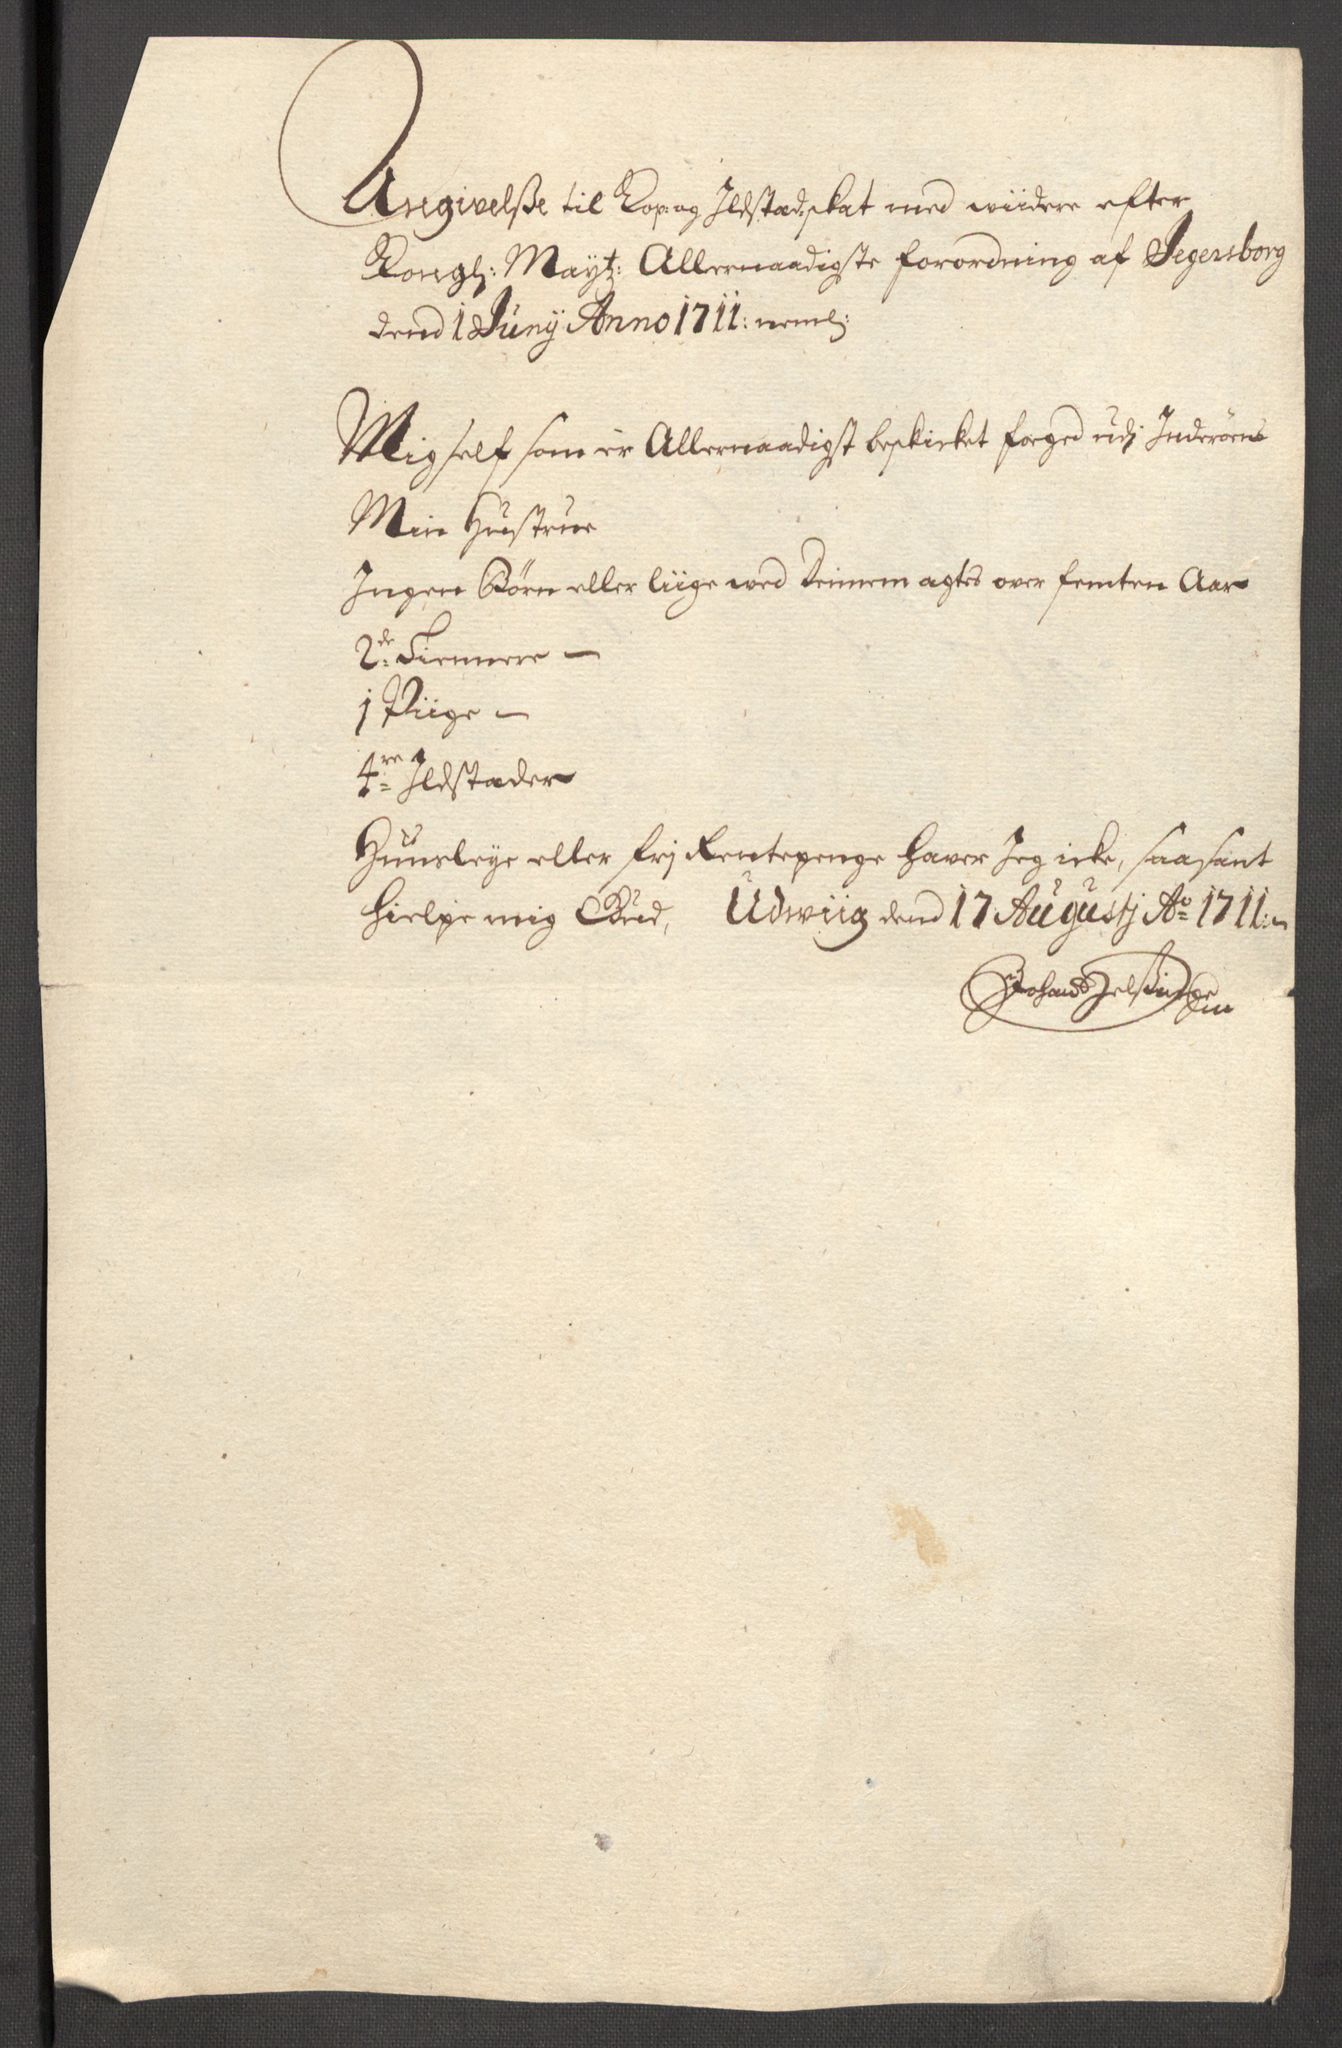 Angivelsse til Kop: og Ildstad:skat med wiidere efter
Kongl: Mayt: Allernaadigste forordning af Jegersborg
dend 1 Juny Anno 1711: neml:
Migself som er Allernaadigst beskicket foeged udj Inderøens
Min Hustrue
Ingen Børn eller liige wed dennem agtes over femten Aar
2de: Tiennere —
1 Piige —
4re: Ildstæder
Huusleye eller frj Rentepenge haver Jeg icke, saa sant
hielpe mig Gud, Udwiig dend 17 Augustj Ao 1711: